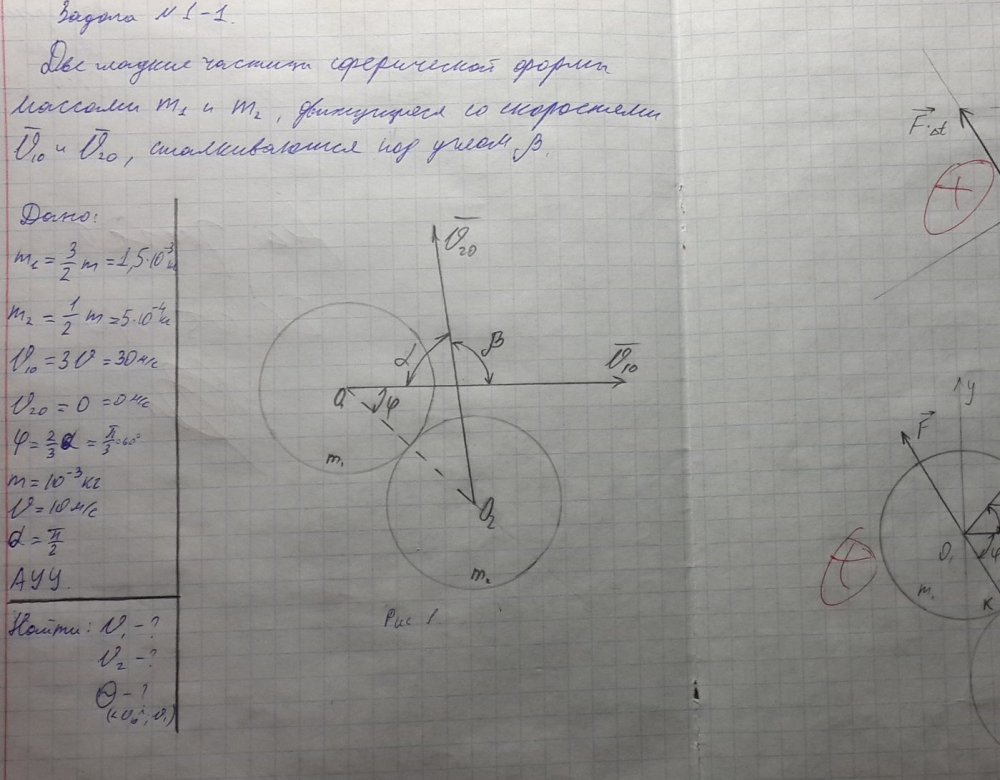 Задача №1-1.
Две гладкие частицы сферической формы
массами m₁ и m₂, движущиеся со скоростями
V̅₁₀ и V̅₂₀, сталкиваются под углом β.
Дано:
m₁ = 3/2 m = 1,5·10⁻³ кг
m₂ = 1/2 m = 5·10⁻⁴ кг
V₁₀ = 3V = 30 м/с
V₂₀ = 0 = 0 м/с
φ = 2/3 α = π/3 = 60°
m = 10⁻³ кг
V = 10 м/с
α = π/2
АУУ.
Найти: V₁ - ?
V₂ - ?
Θ - ?
V̅₂₀
α
β
V̅₁₀
O₁
φ
m₁
O₂
m₂
Рис 1
F⃗·Δt
y
F⃗
O₁
φ
m₁
K